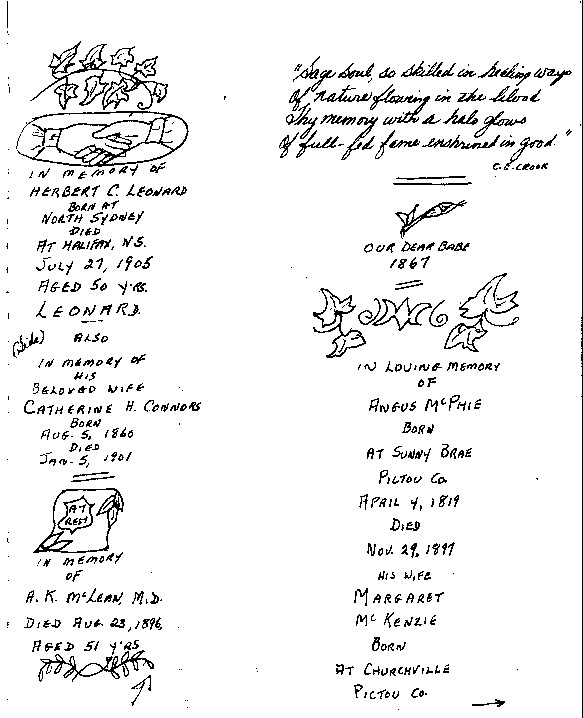 IN MEMORY OF
HERBERT C. LEONARD
BORN AT
NORTH SYDNEY
DIED
AT HALIFAX, N.S.
JULY 27, 1905
AGED 50 Y'RS.
LEONARD.
(Side) ALSO
IN MEMORY OF
HIS
BELOVED WIFE
CATHERINE H. CONNORS
BORN
AUG. 5, 1860
DIED
JAN. 5, 1901
AT
REST
IN MEMORY
OF
A. K. McLEAN, M.D.
DIED AUG 23, 1896,
AGED 51 Y'RS
"Sage soul, so skilled in heeling ways
Of nature flowing in the blood
Thy memory with a halo glows
Of full-fed fame enshrined in good."
C.E. CROOK
OUR DEAR BABE
1867
IN LOVING MEMORY
OF
ANGUS McPHIE
BORN
AT SUNNY BRAE
PICTOU CO.
APRIL 4, 1819
DIED
NOV. 29, 1897
HIS WIFE
MARGARET
McKENZIE
BORN
AT CHURCHVILLE
PICTOU CO.